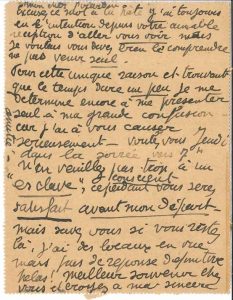 excuse ce mot à la hâte j'ai toujours
eu l'intention depuis votre aimable
réception d'aller vous voir mais
je voulais vous devez bien le comprendre
ne pas venir seul
Pour cette unique raison et trouvant
que le temps dure un peu je me
détermine encore à me présenter
seul à ma grande confusion
car j'ai à vous causer
sérieusement voulez vous jeudi
dans la soirée vers 7
N'en veuillez pas trop à un
esclave; cependant vous serez
satisfait avant mon départ
mais savez vous si vous restez
là, j'ai des locaux en vue
mais pas de réponse définitive
hélas! meilleur souvenir chez
vous et croyez à ma sincère